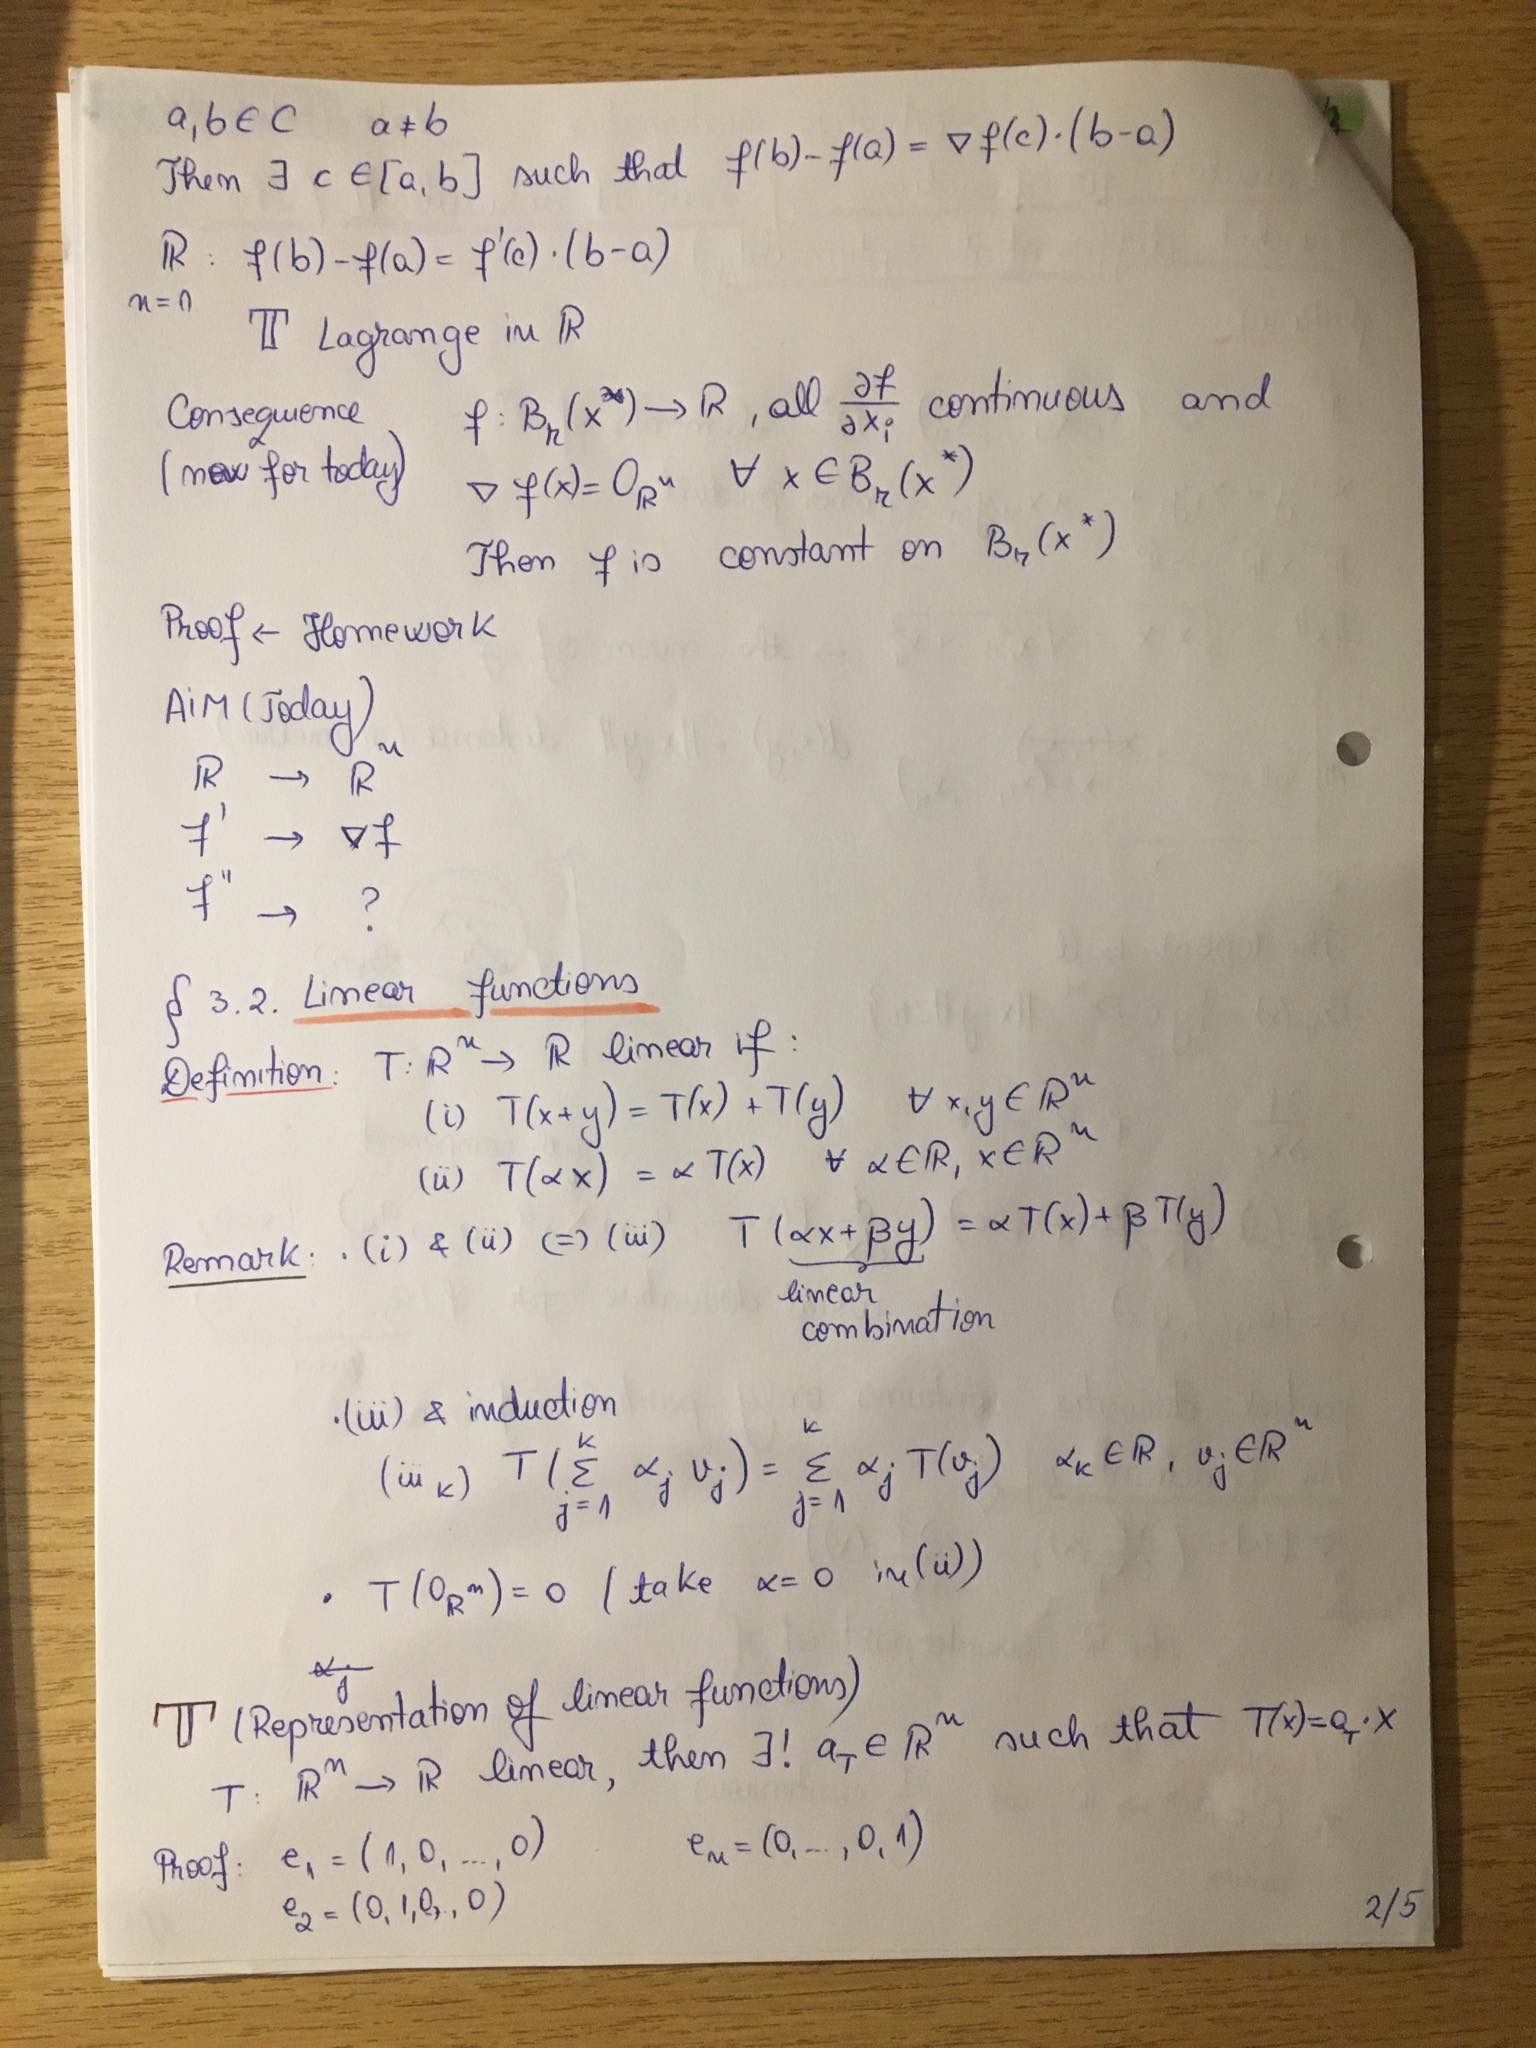 a, b ∈ C   a ≠ b
Then ∃ c ∈ [a, b] such that f(b) - f(a) = ∇f(c)·(b-a)
ℝ : f(b) - f(a) = f'(c)·(b-a)
n=1
𝕋 Lagrange in ℝ
Consequence   f : B_r(x*) → ℝ, all ∂f/∂x_i continuous and
(new for today)   ∇f(x) = 0_ℝⁿ ∀ x ∈ B_r(x*)
Then f is constant on B_r(x*)
Proof ← Homework
AIM (Today)
ℝ → ℝⁿ
f' → ∇f
f'' → ?
§ 3.2. Linear functions
Definition: T: ℝⁿ → ℝ linear if:
(i) T(x+y) = T(x) + T(y)   ∀ x, y ∈ ℝⁿ
(ii) T(αx) = α T(x)   ∀ α ∈ ℝ, x ∈ ℝⁿ
Remark: · (i) & (ii) (=) (iii)   T(αx + βy) = αT(x) + βT(y)
linear
combination
· (iii) & induction
(iii_k) T(Σ_{j=1}^{k} α_j v_j) = Σ_{j=1}^{k} α_j T(v_j)   α_k ∈ ℝ, v_j ∈ ℝⁿ
· T(0_ℝⁿ) = 0 (take α = 0 in (ii))
α_j
𝕋 (Representation of linear functions)
T: ℝⁿ → ℝ linear, then ∃! a_T ∈ ℝⁿ such that T(x) = a_T · x
Proof: e₁ = (1, 0, ..., 0)   e_n = (0, ..., 0, 1)
e₂ = (0, 1, 0, .., 0)
2/5